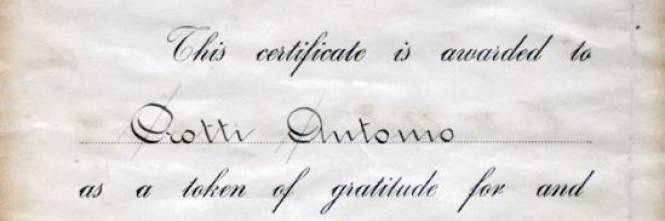 This certificate is awarded to
Crotti Antonio
as a token of gratitude for and